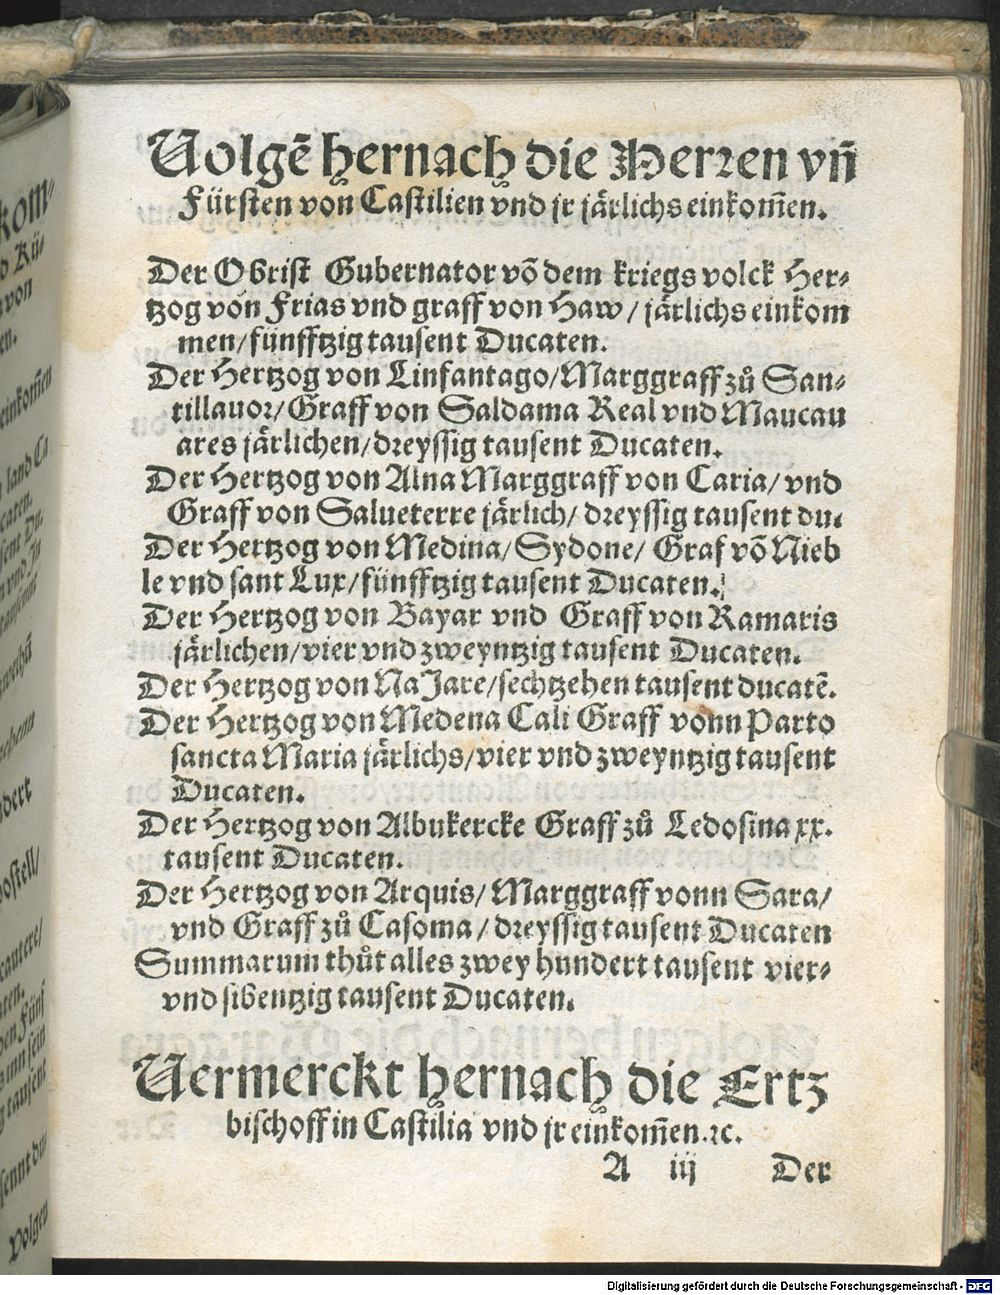 Volgẽ hernach die Herren vñ
Fürsten von Castilien vnd jr järlichs einkom̃en.
Der Obrist Gubernator võ dem kriegs volck Her-
tzog von Frias vnd graff von Haw / järlichs einkom
men/fünfftzig tausent Ducaten.
Der Hertzog von Linfantago/Marggraff zů San-
tillauor/Graff von Saldama Real vnd Maucau
ares järlichen/dreyssig tausent Ducaten.
Der Hertzog von Alna Marggraff von Caria/ vnd
Graff von Salueterre järlich/ dreyssig tausent du.
Der Hertzog von Medina/Sydone/ Graf võ Nieb
le vnd sant Lux/fünfftzig tausent Ducaten.
Der Hertzog von Bayar vnd Graff von Ramaris
järlichen/vier vnd zweyntzig tausent Ducaten.
Der Hertzog von NaJare/sechtzehen tausent ducatẽ.
Der Hertzog von Medena Cali Graff vonn Parto
sancta Maria järlichs/vier vnd zweyntzig tausent
Ducaten.
Der Hertzog von Albukercke Graff zů Ledosina xx.
tausent Ducaten.
Der Hertzog von Arquis/ Marggraff vonn Sara/
vnd Graff zů Casoma / dreyssig tausent Ducaten
Summarum thůt alles zwey hundert tausent vier-
vnd sibentzig tausent Ducaten.
Vermerckt hernach die Ertz
bischoff in Castilia vnd jr einkom̃en.ꝛc.
A iij Der
kom-
d Kü-
von
en.
einkom̃en
land Ca
caten.
sent Du-
zweihũ
dert
postell/
cantere/
aten.
en Fünf
s inn sein
g tausent
sennt du-
Volgen
Digitalisierung gefördert durch die Deutsche Forschungsgemeinschaft - DFG